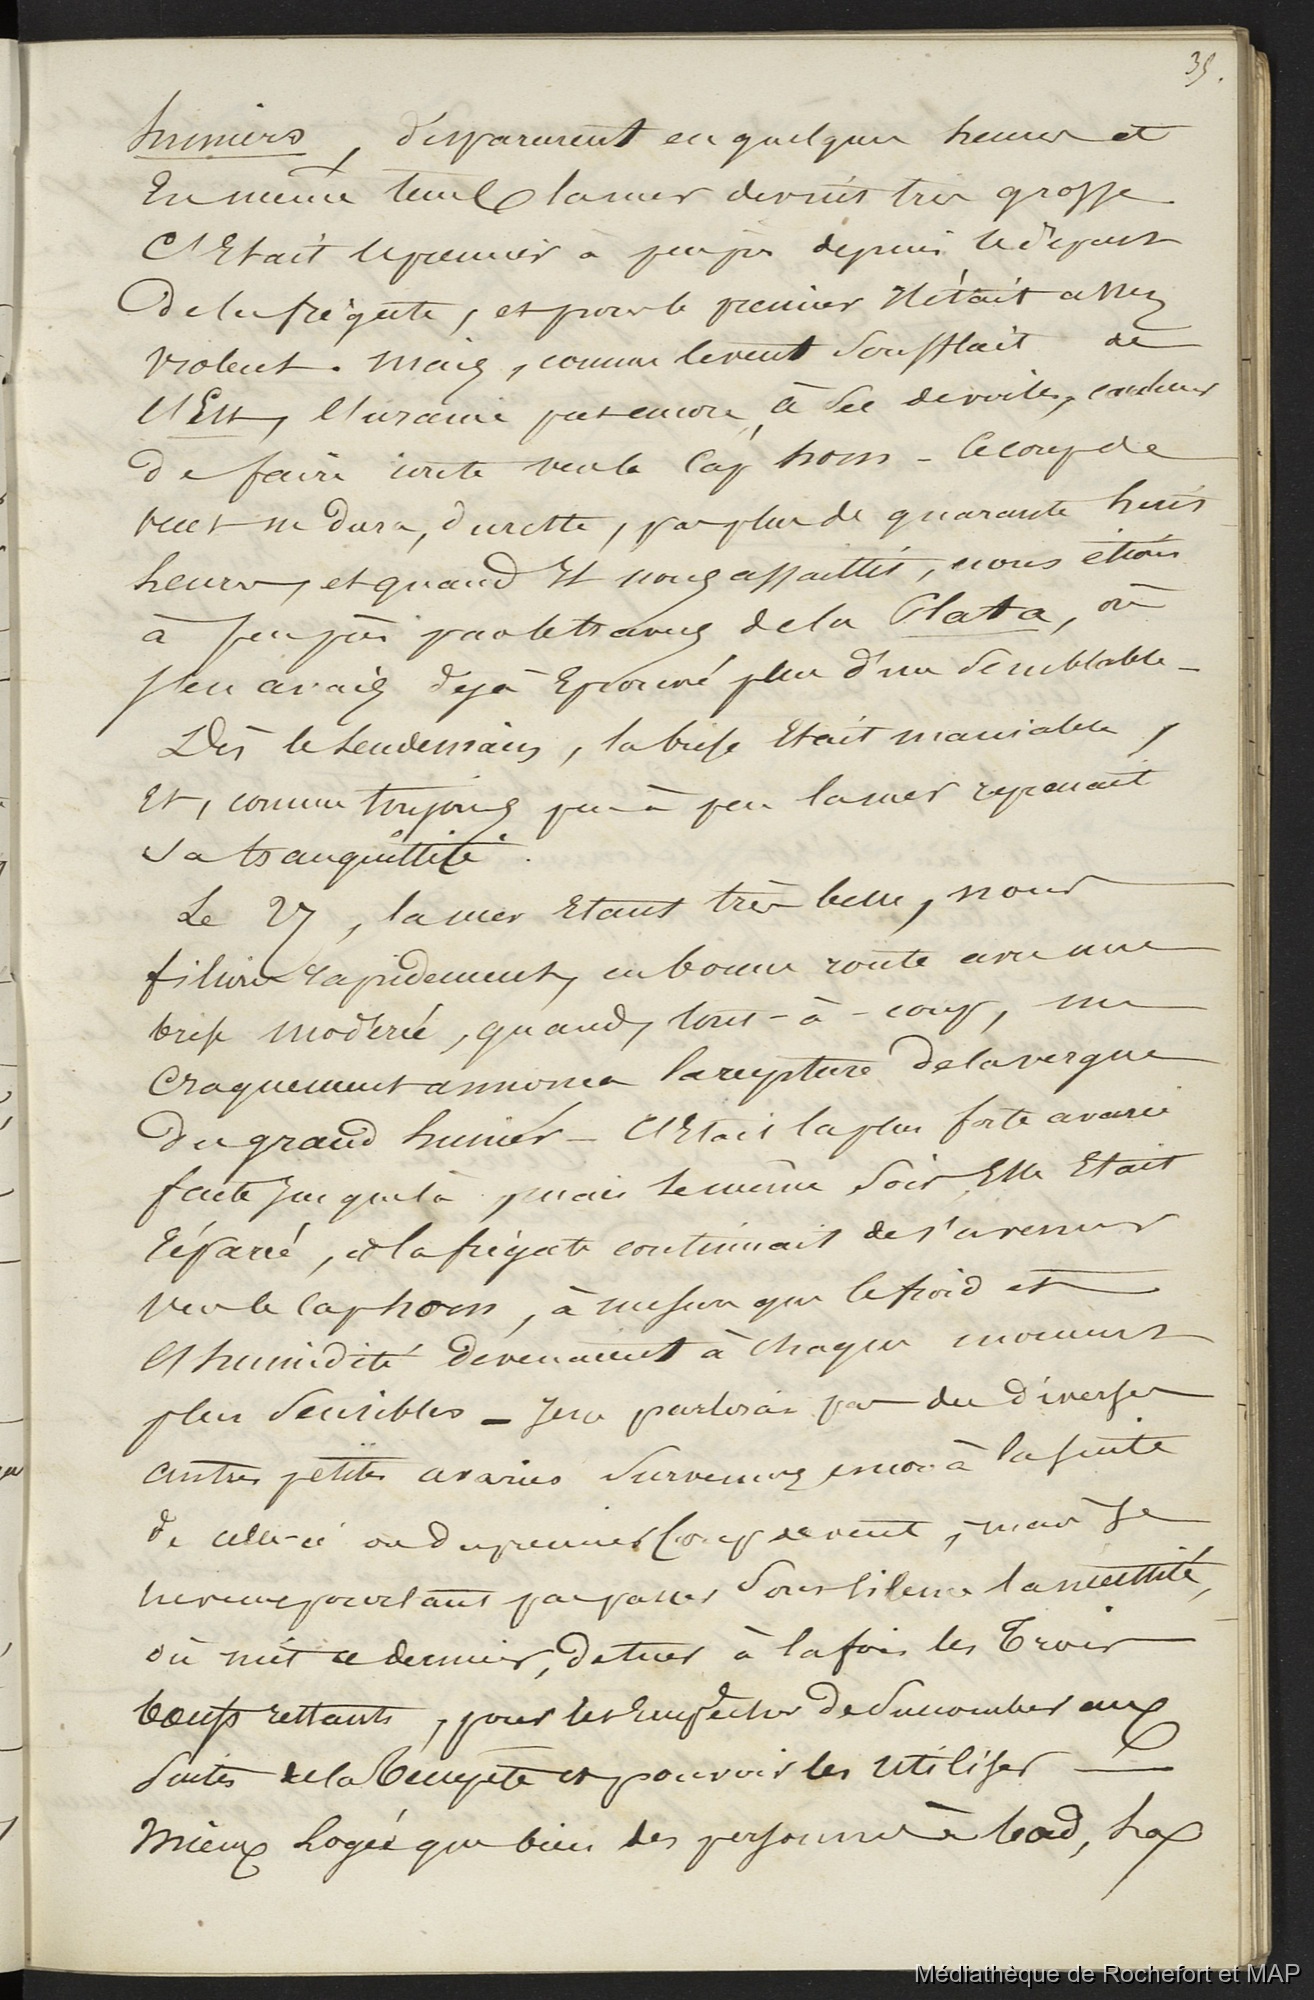 39.
huniers, disparurent en quelques heures et
En même temps la mer devint très grosse
C'Etait le premier à peu près depuis le départ
De la frégate, et pour le premier Il était assez
violent. Mais, comme le vent Soufflait de
l'Est, l'uranie put encore, à Sec de voiles, continuer
De faire route vers le Cap horn - le coup de
vent ne dura, du reste, pas plus de quarante huit
heures, et quand Il nous assaillit, nous étions
à peu près par le travers de la Plata, où
j'en avais déjà Eprouvé plus d'un Semblable -
Dès le lendemain, la brise Etait maniable,
Et, comme toujours peu à peu la mer reprenait
Sa tranquillité.
Le 27, la mer Etant très belle, nous
filions rapidement, en bonne route avec une
brise modérée, quand, tout-à-coup, un
craquement annonça la rupture de la vergue
Du grand hunier - C'Etait la plus forte avarie
faite jusque là, mais le même Soir Elle Etait
réparée, et la frégate continuait de s'avancer
vers le Cap horn, à mesure que le froid et
l'humidité devenaient à chaque moment
plus Sensibles - Je ne parlerai pas des diverses
autres petites avaries Survenues encore à la suite
de celle-ci ou du premier Coup de vent, mais Je
ne veux pourtant pas passer Sous silence la nécessité,
où mit ce dernier, de tuer à la fois les Trois
boeufs restants, pour les Empêcher De Succomber aux
Suites de la Tempête et pouvoir les utiliser
Mieux Logés que bien des personnes à bord,
Médiathèque de Rochefort et MAP